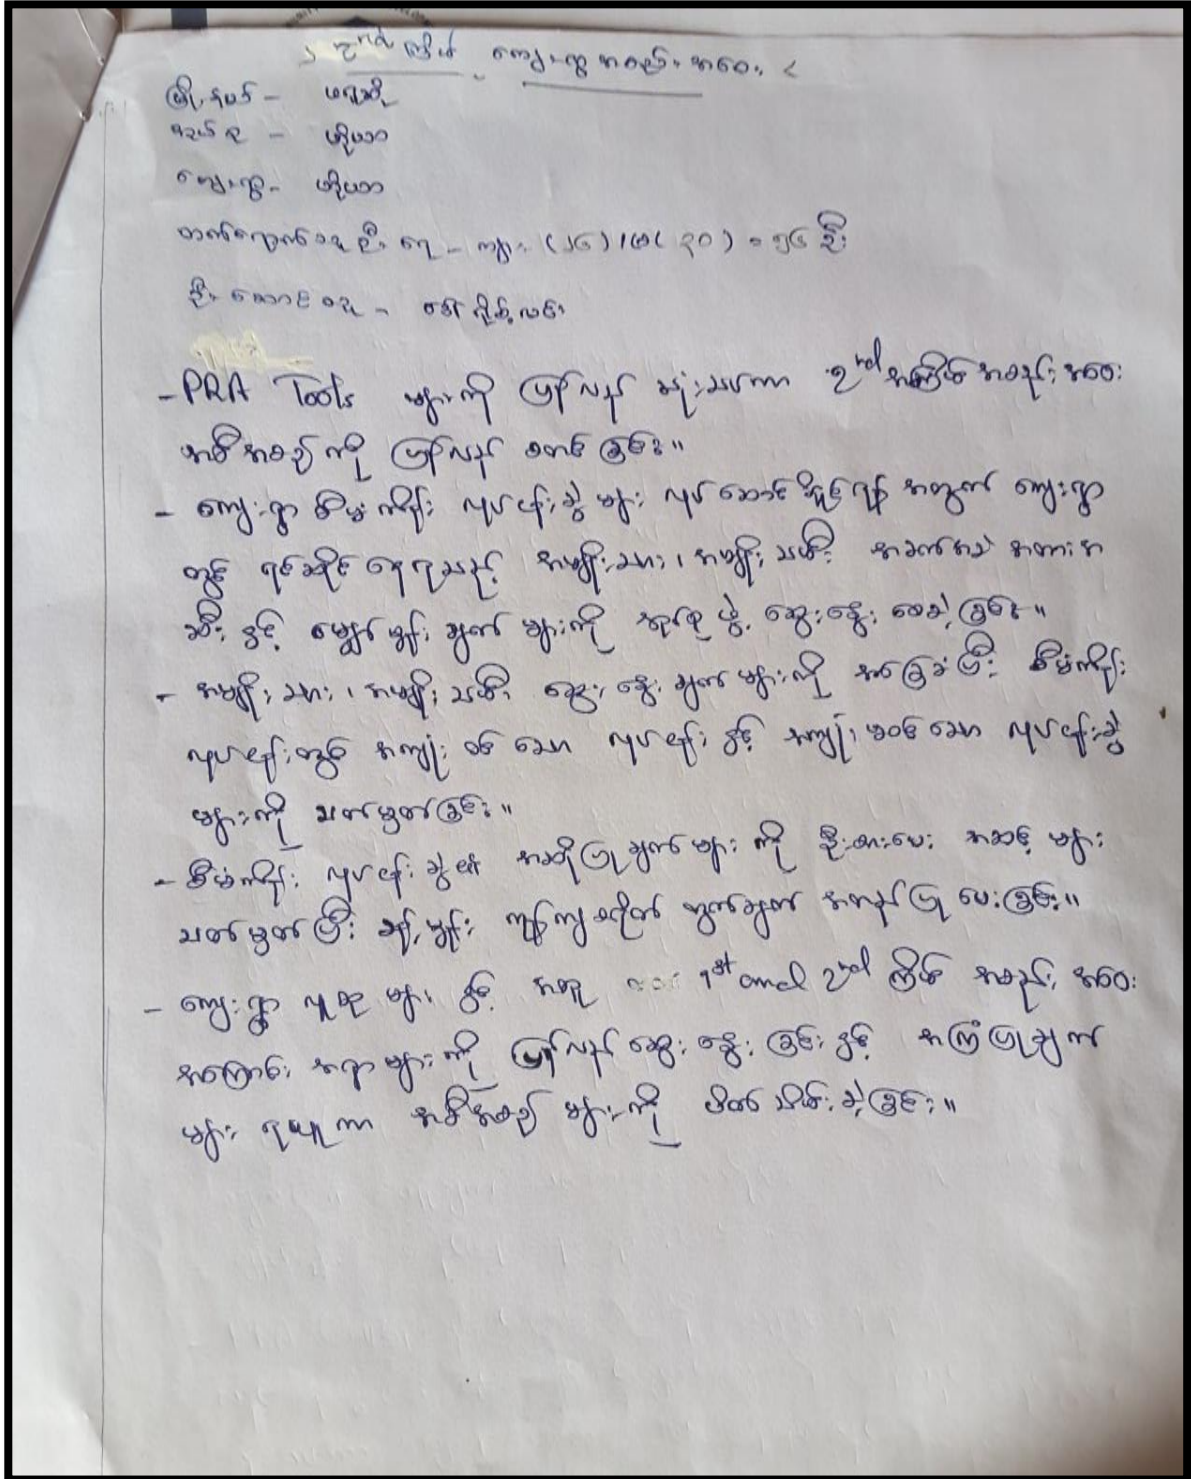 2nd ကြိမ် ကျေးရွာအစည်းအဝေး
မြို့နယ် - ဖရူဆို
ကျေးရွာ -
တက်ရောက်သူဦးရေ - ကျား (၂၄) ၊ မ ( ၃၀ ) = ၅၄ ဦး
ဦးဆောင်သူ -
- PRA Tools များကို ပြန်လည် သုံးသပ်ကာ 2nd အကြိမ် အစည်းအဝေး
အစီအစဉ် ကို ပြန်လည် စတင်ခြင်း။
- ကျေးရွာ စီမံကိန်း လုပ်ငန်းခွဲ များ လုပ်ဆောင်နိုင်ရန် အတွက် ကျေးရွာ
တွင် ရင်ဆိုင်နေရသည့် အမျိုးသား ၊ အမျိုးသမီး အခက်အခဲ အတားအ
ဆီး နှင့် မျှော်မှန်းချက် များကို အုပ်စုဖွဲ့ ဆွေးနွေး စေခဲ့ခြင်း။
- အမျိုးသား ၊ အမျိုးသမီး ဆွေးနွေးချက်များကို အခြေခံပြီး စီမံကိန်း
လုပ်ငန်းတွင် အကျုံးဝင်သော လုပ်ငန်း နှင့် အကျုံးမဝင်သော လုပ်ငန်းခွဲ
များကို သတ်မှတ်ခြင်း။
- စီမံကိန်း လုပ်ငန်းခွဲ၏ အဆိုပြုချက်များ ကို ဦးစားပေး အဆင့် များ
သတ်မှတ်ပြီး ခန့်မှန်း ကုန်ကျစရိတ် တွက်ချက် အတည်ပြု ပေးခြင်း။
- ကျေးရွာ လူထု များ နှင့် အတူ 1st and 2nd ကြိမ် အစည်းအဝေး
အကြောင်းအရာများ ကို ပြန်လည် ဆွေးနွေးခြင်း နှင့် အကြံပြုချက်
များ ရယူကာ အစီအစဉ် များကို ပိတ်သိမ်းခဲ့ခြင်း။